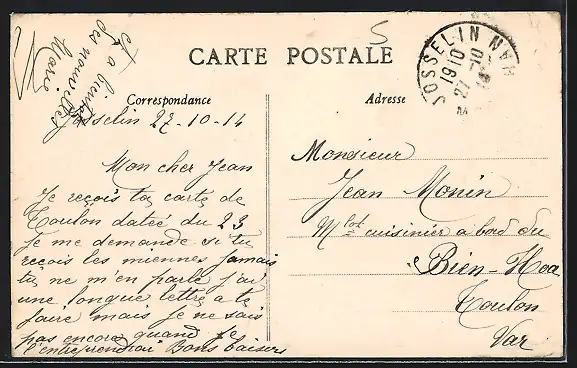 et
à bientôt
des nouvelles
Marie
5
CARTE POSTALE
JOSSELIN
19 10
27 -10
Correspondance
Adresse
Josselin 27-10-14
Mon cher Jean
Je reçois ta carte de
Toulon datée du 23
Je me demande si tu
reçois les miennes jamais
tu ne m'en parle j'ai
une longue lettre a te
faire mais je ne sais
pas encore quand je
l'entreprendrai Bons baisers
Monsieur
Jean Monin
Mlot cuisinier a bord du
Bien-Hoa
Toulon
Var